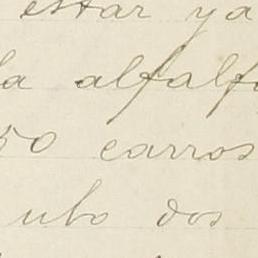 estar ya
la alfalf
50 carros
ubo dos